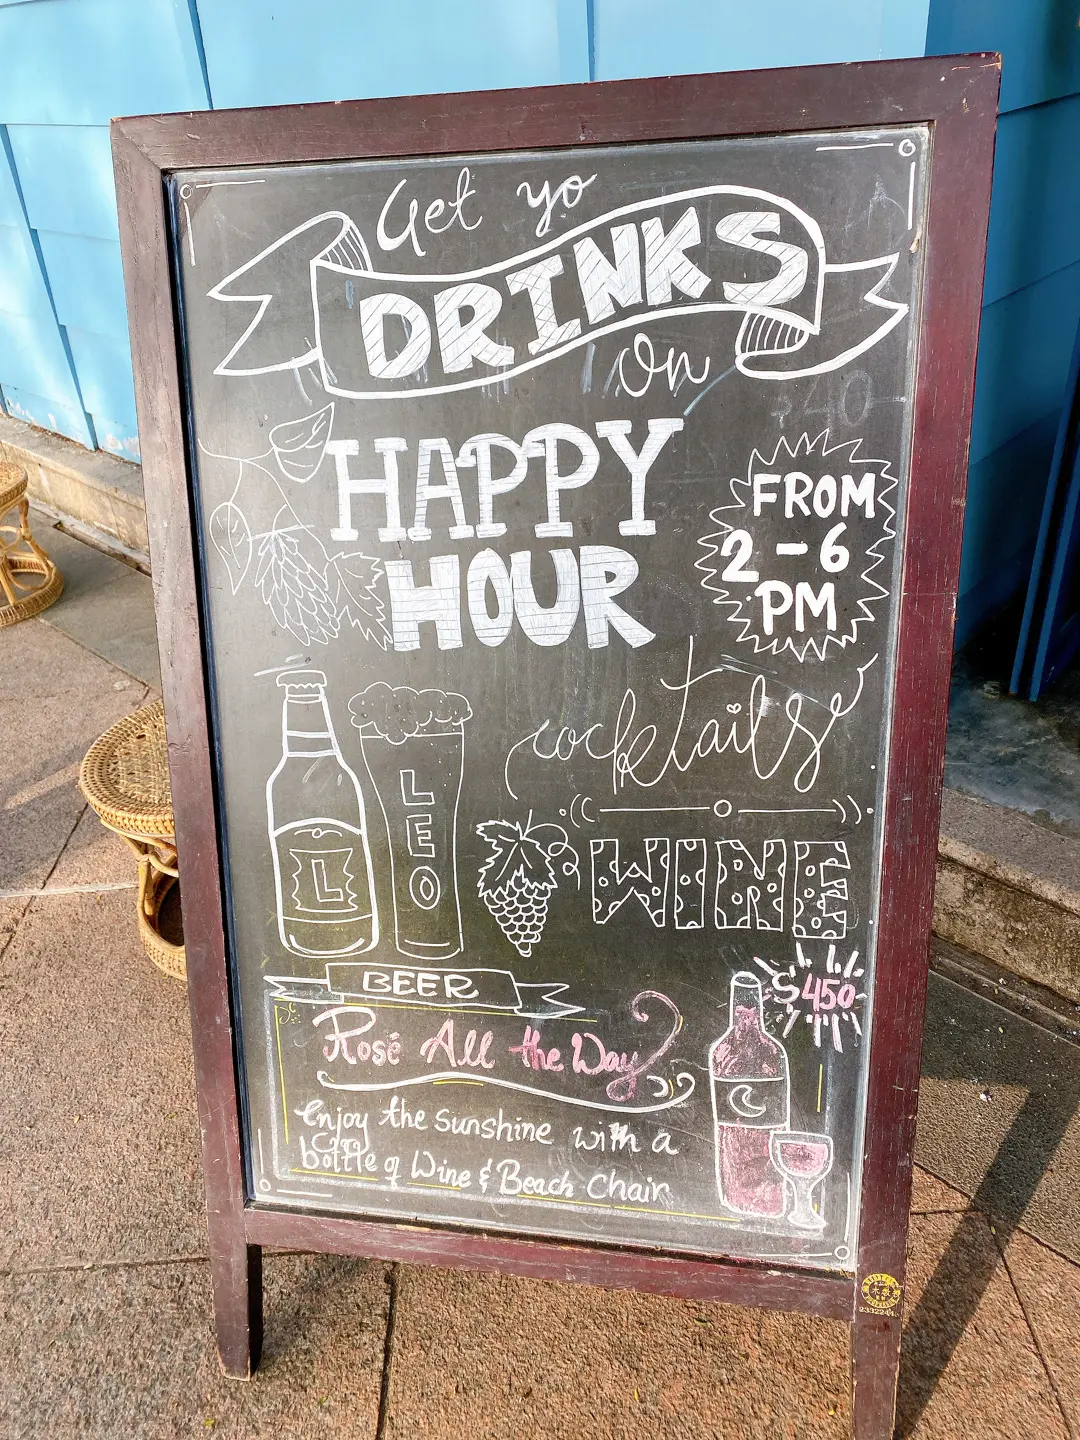 Get yo
DRINKS
On
HAPPY
HOUR
FROM
2-6
PM
cocktails
L
LEO
WINE
BEER
$450
Rosé All the Way
enjoy the sunshine with a
bottle of Wine & Beach Chair